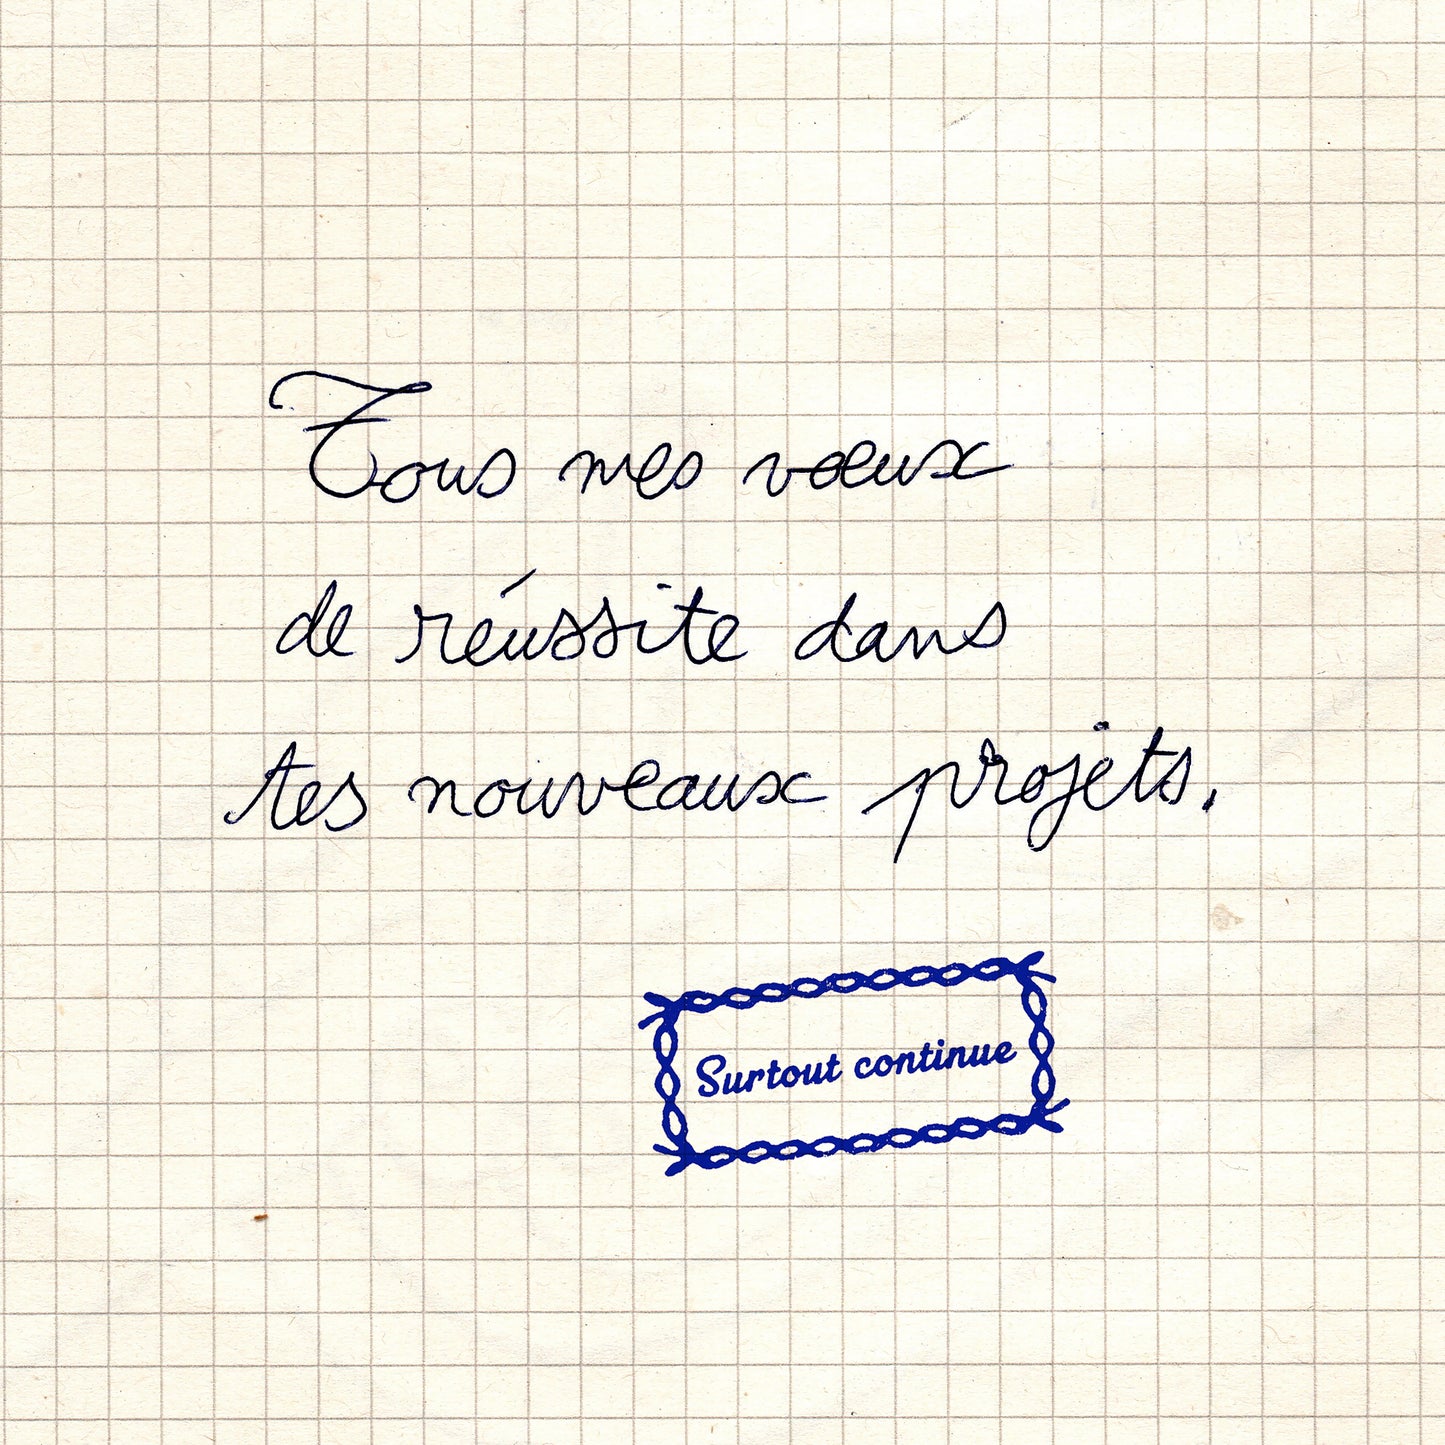 Tous mes vœux
de réussite dans
tes nouveaux projets.
Surtout continue